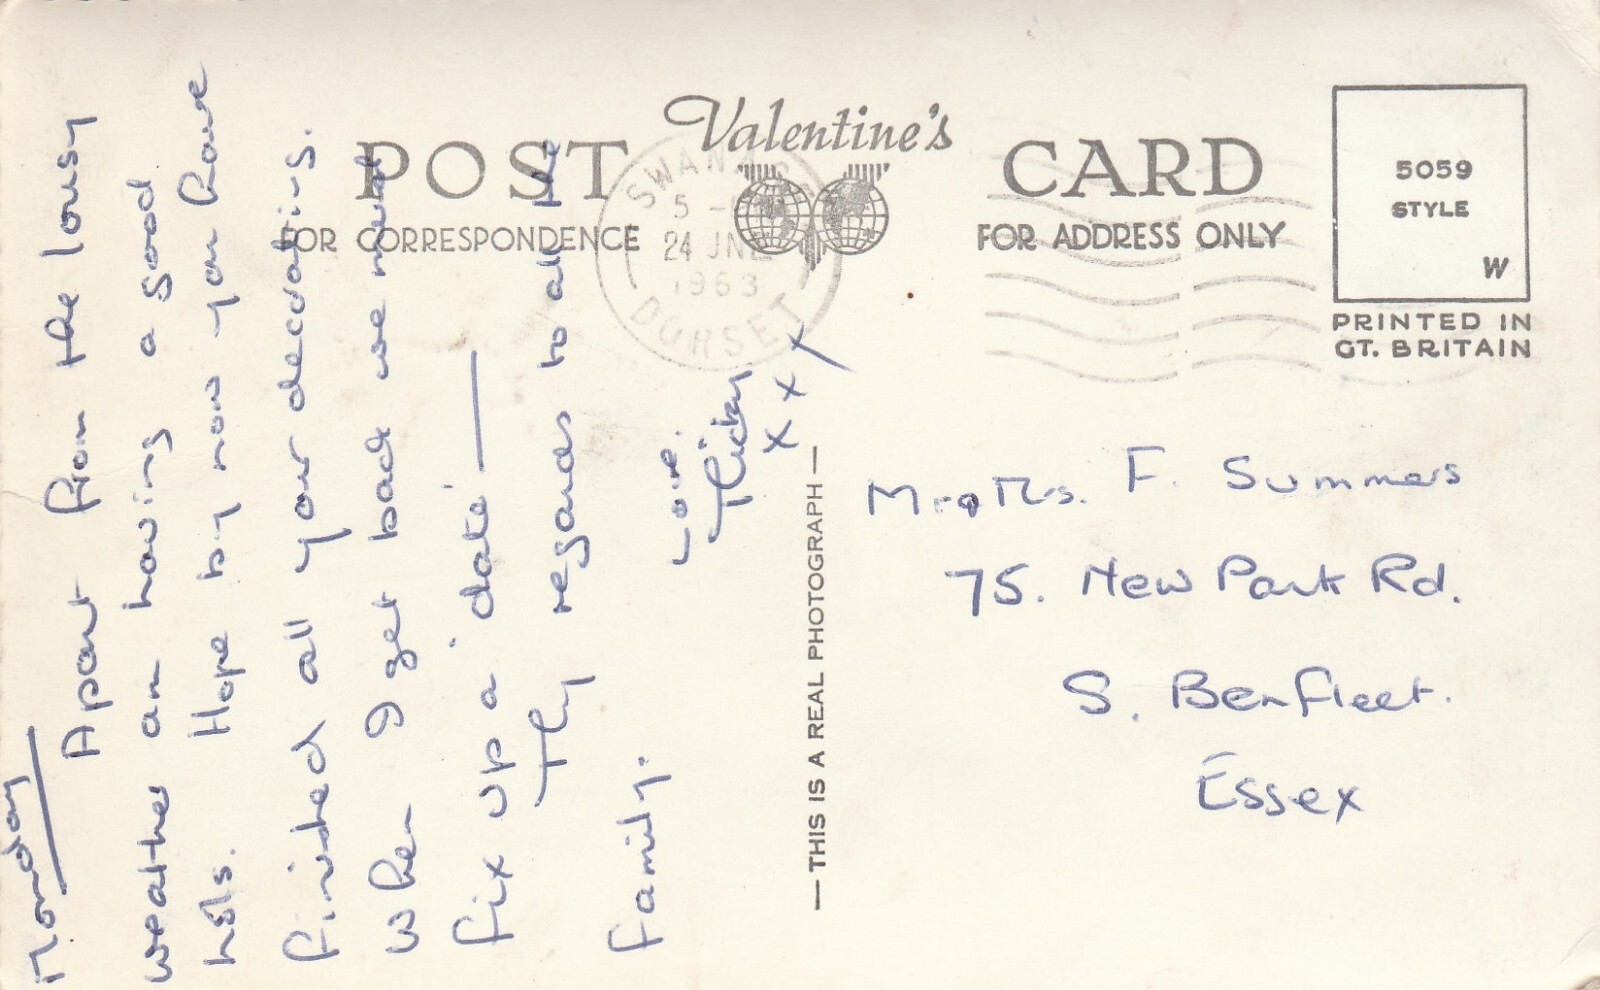 Valentine's
POST CARD
FOR CORRESPONDENCE
FOR ADDRESS ONLY
5059
STYLE
W
PRINTED IN
GT. BRITAIN
SWANAGE
5 -
24 JNE
1963
DORSET
— THIS IS A REAL PHOTOGRAPH —
Monday
Apart from the lousy
weather am having a good
hols. Hope by now you have
finished all your decorating.
When I get back we must
fix up a 'date' —
My regards to all the
family.
Love.
Ricky
x x x
Mr & Mrs. F. Summers
75. New Park Rd.
S. Benfleet.
Essex